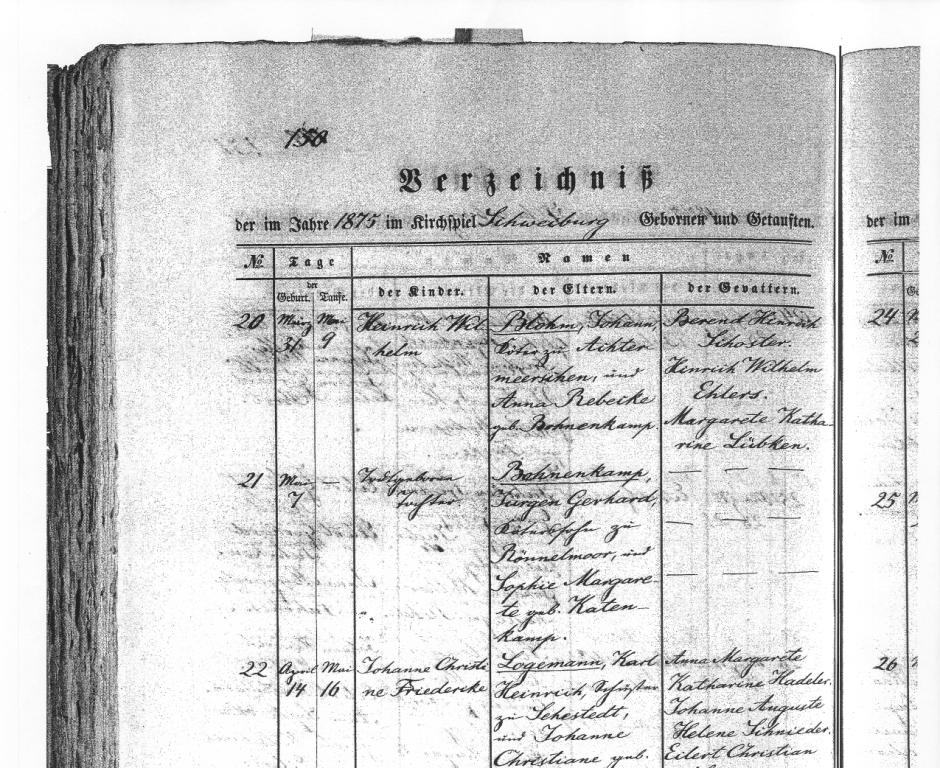 158
Verzeichniß
der im Jahre 1875 im Kirchspiel Schweiburg Gebornen und Getauften.
der im
№ Tage Namen
№
der
Geburt. Taufe. der Kinder. der Eltern. der Gevattern.
20 März Mai Heinrich Wil- Blohm, Johann, Berend Hinrich
24
31 9 helm Köter zu Achter Schoster.
meerschen, und Hinrich Wilhelm
Anna Rebecke Ehlers.
geb. Bohnenkamp. Margarete Katha-
rine Lübken.
21 Mai — Todtgeborene Bohnenkamp, — — —
7 Tochter Jürgen Gerhard,
25
Kötersohn zu — — —
Rönnelmoor, und
Sophie Margare- — — —
te geb. Katen-
kamp.
22 April Mai Johanne Christi Logemann, Karl Anna Margarete
26
14 16 ne Friederike Heinrich, Katharine Hadeler.
zu Sehestedt, Johanne Auguste
und Johanne Helene Schnieder.
Christiane geb. Eilert Christian